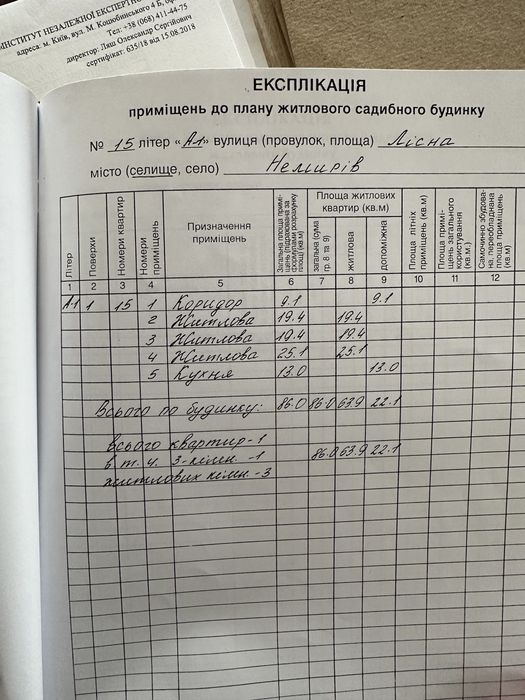 ІНСТИТУТ НЕЗАЛЕЖНОЇ ЕКСПЕРТ
адреса: м. Київ, вул. М. Коцюбинського 4 Б, оф
Тел: +38 (068) 411-44-75
директор: Ляш Олександр Сергійович
сертифікат: 635/18 від 15.08.2018
ЕКСПЛІКАЦІЯ
приміщень до плану житлового садибного будинку
№ 15 літер «А1» вулиця (провулок, площа) Лісна
місто (селище, село) Немирів
Літер
Поверхи
Номери квартир
Номери приміщень
Призначення приміщень
Загальна площа приміщень (підрахована за формулами розрахунку площ) (кв.м)
Площа житлових квартир (кв.м)
загальна (сума гр. 8 та 9)
житлова
допоміжна
Площа літніх приміщень (кв.м)
Площа приміщень загального користування (кв.м.)
Самочинно збудована, переобладнана площа приміщень (кв.м)
1 2 3 4 5 6 7 8 9 10 11 12
А1 1 15 1 Коридор 9.1 9.1
2 Житлова 19.4 19.4
3 Житлова 19.4 19.4
4 Житлова 25.1 25.1
5 Кухня 13.0 13.0
Всього по будинку: 86.0 86.0 63.9 22.1
всього квартир-1
в т. ч. 3-кімн. -1 86.0 63.9 22.1
житлових кімн. -3